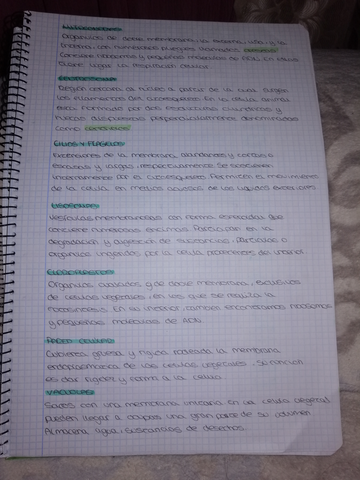 MITOCONDRIAS
Orgánulos de doble membrana, la externa, lisa, y la
interna, con numerosos pliegues llamados crestas
contiene ribosomas y pequeñas moléculas de ADN, en ellas
tiene lugar la respiración celular
CENTROSOMA
Región cercana al núcleo a partir de la cual surgen
los filamentos del citoesqueleto. En la célula animal
está formado por dos estructuras cilíndricas y
huecas dispuestas perpendicularmente denominadas
como centriolos
CILIOS Y FLAGELOS
Extensiones de la membrana, abundantes y cortos o
escasos y largos, respectivamente. Se sostienen
internamente por el citoesqueleto. Permiten el movimiento
de la célula en medios acuosos o de los líquidos exteriores.
LISOSOMAS
Vesículas membranosas con forma esferoidal que
contiene numerosas enzimas. Participan en la
degradación y digestión de sustancias, partículas o
orgánulos ingeridos por la célula procedentes de
CLOROPLASTOS
Orgánulos ovalados y de doble membrana, exclusivos
de células vegetales, en los que se realiza la
fotosíntesis. En su interior también encontramos ribosomas
y pequeñas moléculas de ADN.
PARED CELULAR
Cubierta gruesa y rígida rodeada la membrana
de las células vegetales. Su función
es dar rigidez y forma a la célula.
VACUOLAS
Sacos con una membrana unitaria. En la célula vegetal
pueden llegar a ocupar una gran parte de su volumen
Almacena agua, sustancias de desechos.